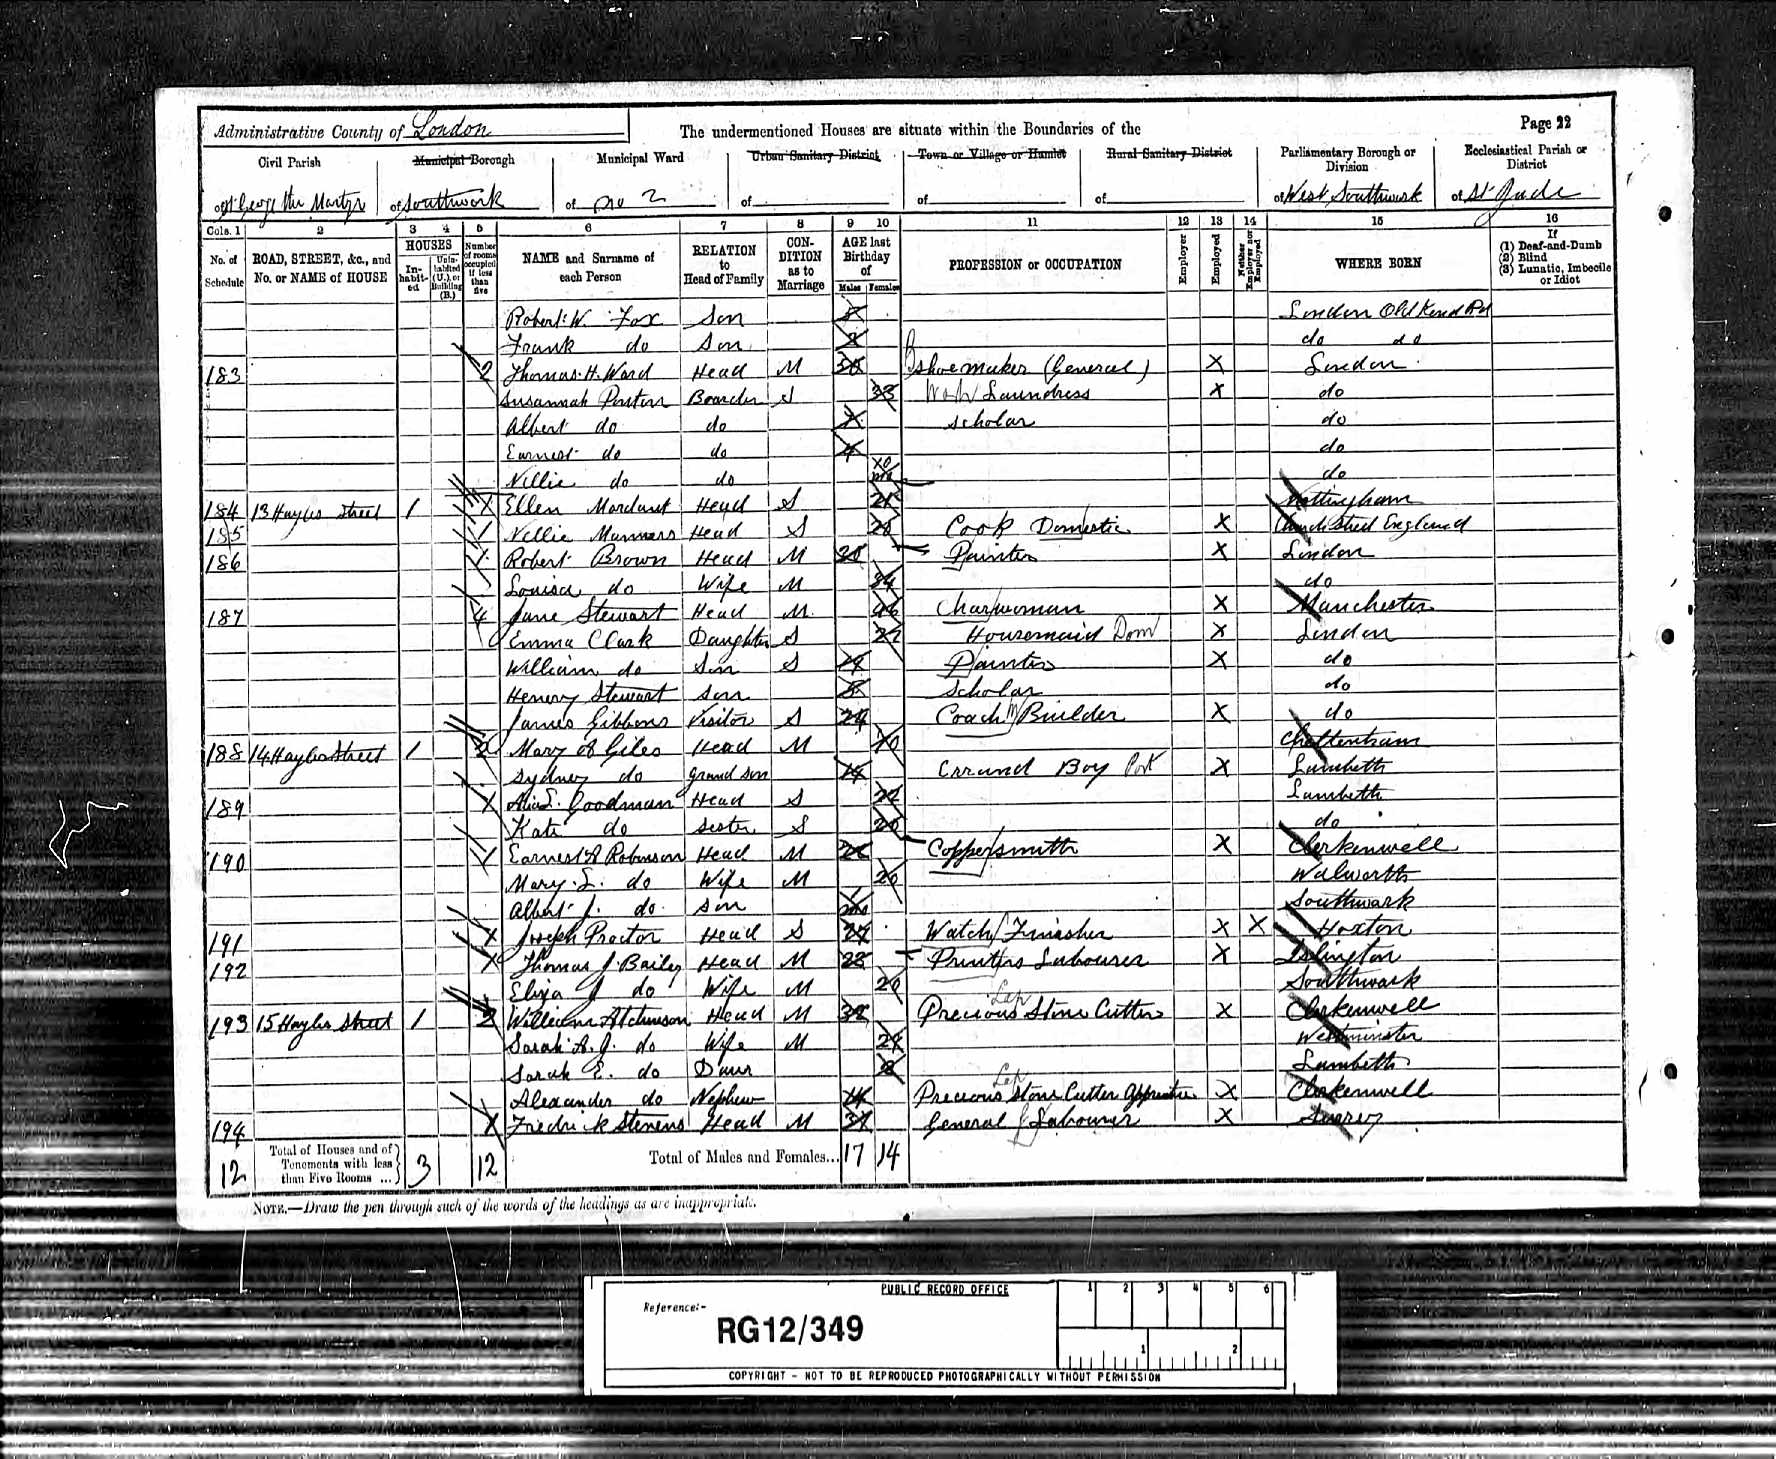 Administrative County of London
The undermentioned Houses are situate within the Boundaries of the
Page 22
Civil Parish
Municipal Borough
Municipal Ward
Urban Sanitary District
Town or Village or Hamlet
Rural Sanitary District
Parliamentary Borough or Division
Ecclesiastical Parish or District
of St George the Martyr
of Southwark
of No 2
of
of
of
of West Southwark
of St Jude
Cols. 1 2 3 4 5 6 7 8 9 10 11 12 13 14 15 16
No. of Schedule
ROAD, STREET, &c., and No. or NAME of HOUSE
HOUSES
In-habit-ed
Unin-habited (U.), or Building (B.)
Number of rooms occupied if less than five
NAME and Surname of each Person
RELATION to Head of Family
CON-DITION as to Marriage
AGE last Birthday of
Males
Females
PROFESSION or OCCUPATION
Employer
Employed
Neither Employer nor Employed
WHERE BORN
If
(1) Deaf-and-Dumb
(2) Blind
(3) Lunatic, Imbecile or Idiot
Robert W. Fox Son London Old Kent Rd
Frank do Son do do
183 2 Thomas H. Ward Head M Shoe maker (General) X London
Susannah Boarder S 33 Laundress X do
Albert do do Scholar do
Earnest do do 4 do
Nellie do do 10 mo do
184 13 Hayles Street 1 1 Ellen Head S Nottingham
185 1 Nellie Manners Head S Cook Domestic X England
186 1 Robert Brown Head M Painter X London
Louisa do Wife M do
187 4 Jane Stewart Head M 46 Charwoman X Manchester
Emma Clark Daughter S Housemaid Dom X London
William do Son S 19 Painter X do
Henery Stewart Son Scholar do
James Gibbons Visitor S 24 Coach Builder X do
188 14 Hayles Street 1 2 Mary A Giles Head M 70 Cheltenham
Sydney do grand son 14 Errand Boy X Lambeth
189 1 Goodman Head S 22 Lambeth
Kate do Sister S 20 do
190 1 Earnest A Robinson Head M Coppersmith X Clerkenwell
Mary L. do Wife M 20 Walworth
Albert J. do Son mo Southwark
191 1 Joseph Proctor Head S Watch Finisher X X Hoxton
192 1 Thomas J Bailey Head M 22 Printers Labourer X Islington
Eliza J do Wife M 20 Southwark
193 15 Hayles Street 1 2 William Atchinson Head M 32 Precious Stone Cutter X Clerkenwell
Lap
Sarah A. J. do Wife M Westminster
Sarah E. do Daur Lambeth
Lap
Alexander do Nephew 14 Precious Stone Cutter Apprentice X Clerkenwell
194 1 Fredrick Stevens Head M 31 General Labourer X Surrey
12
Total of Houses and of Tenements with less than Five Rooms ...
3 12
Total of Males and Females... 17 14
NOTE.—Draw the pen through such of the words of the headings as are inappropriate.
PUBLIC RECORD OFFICE
Reference:-
RG12/349
1 2 3 4 5 6
1 2
COPYRIGHT - NOT TO BE REPRODUCED PHOTOGRAPHICALLY WITHOUT PERMISSION